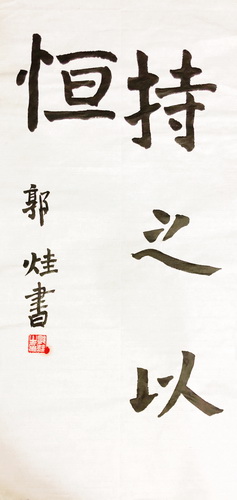 持之以
恒
郭炷書